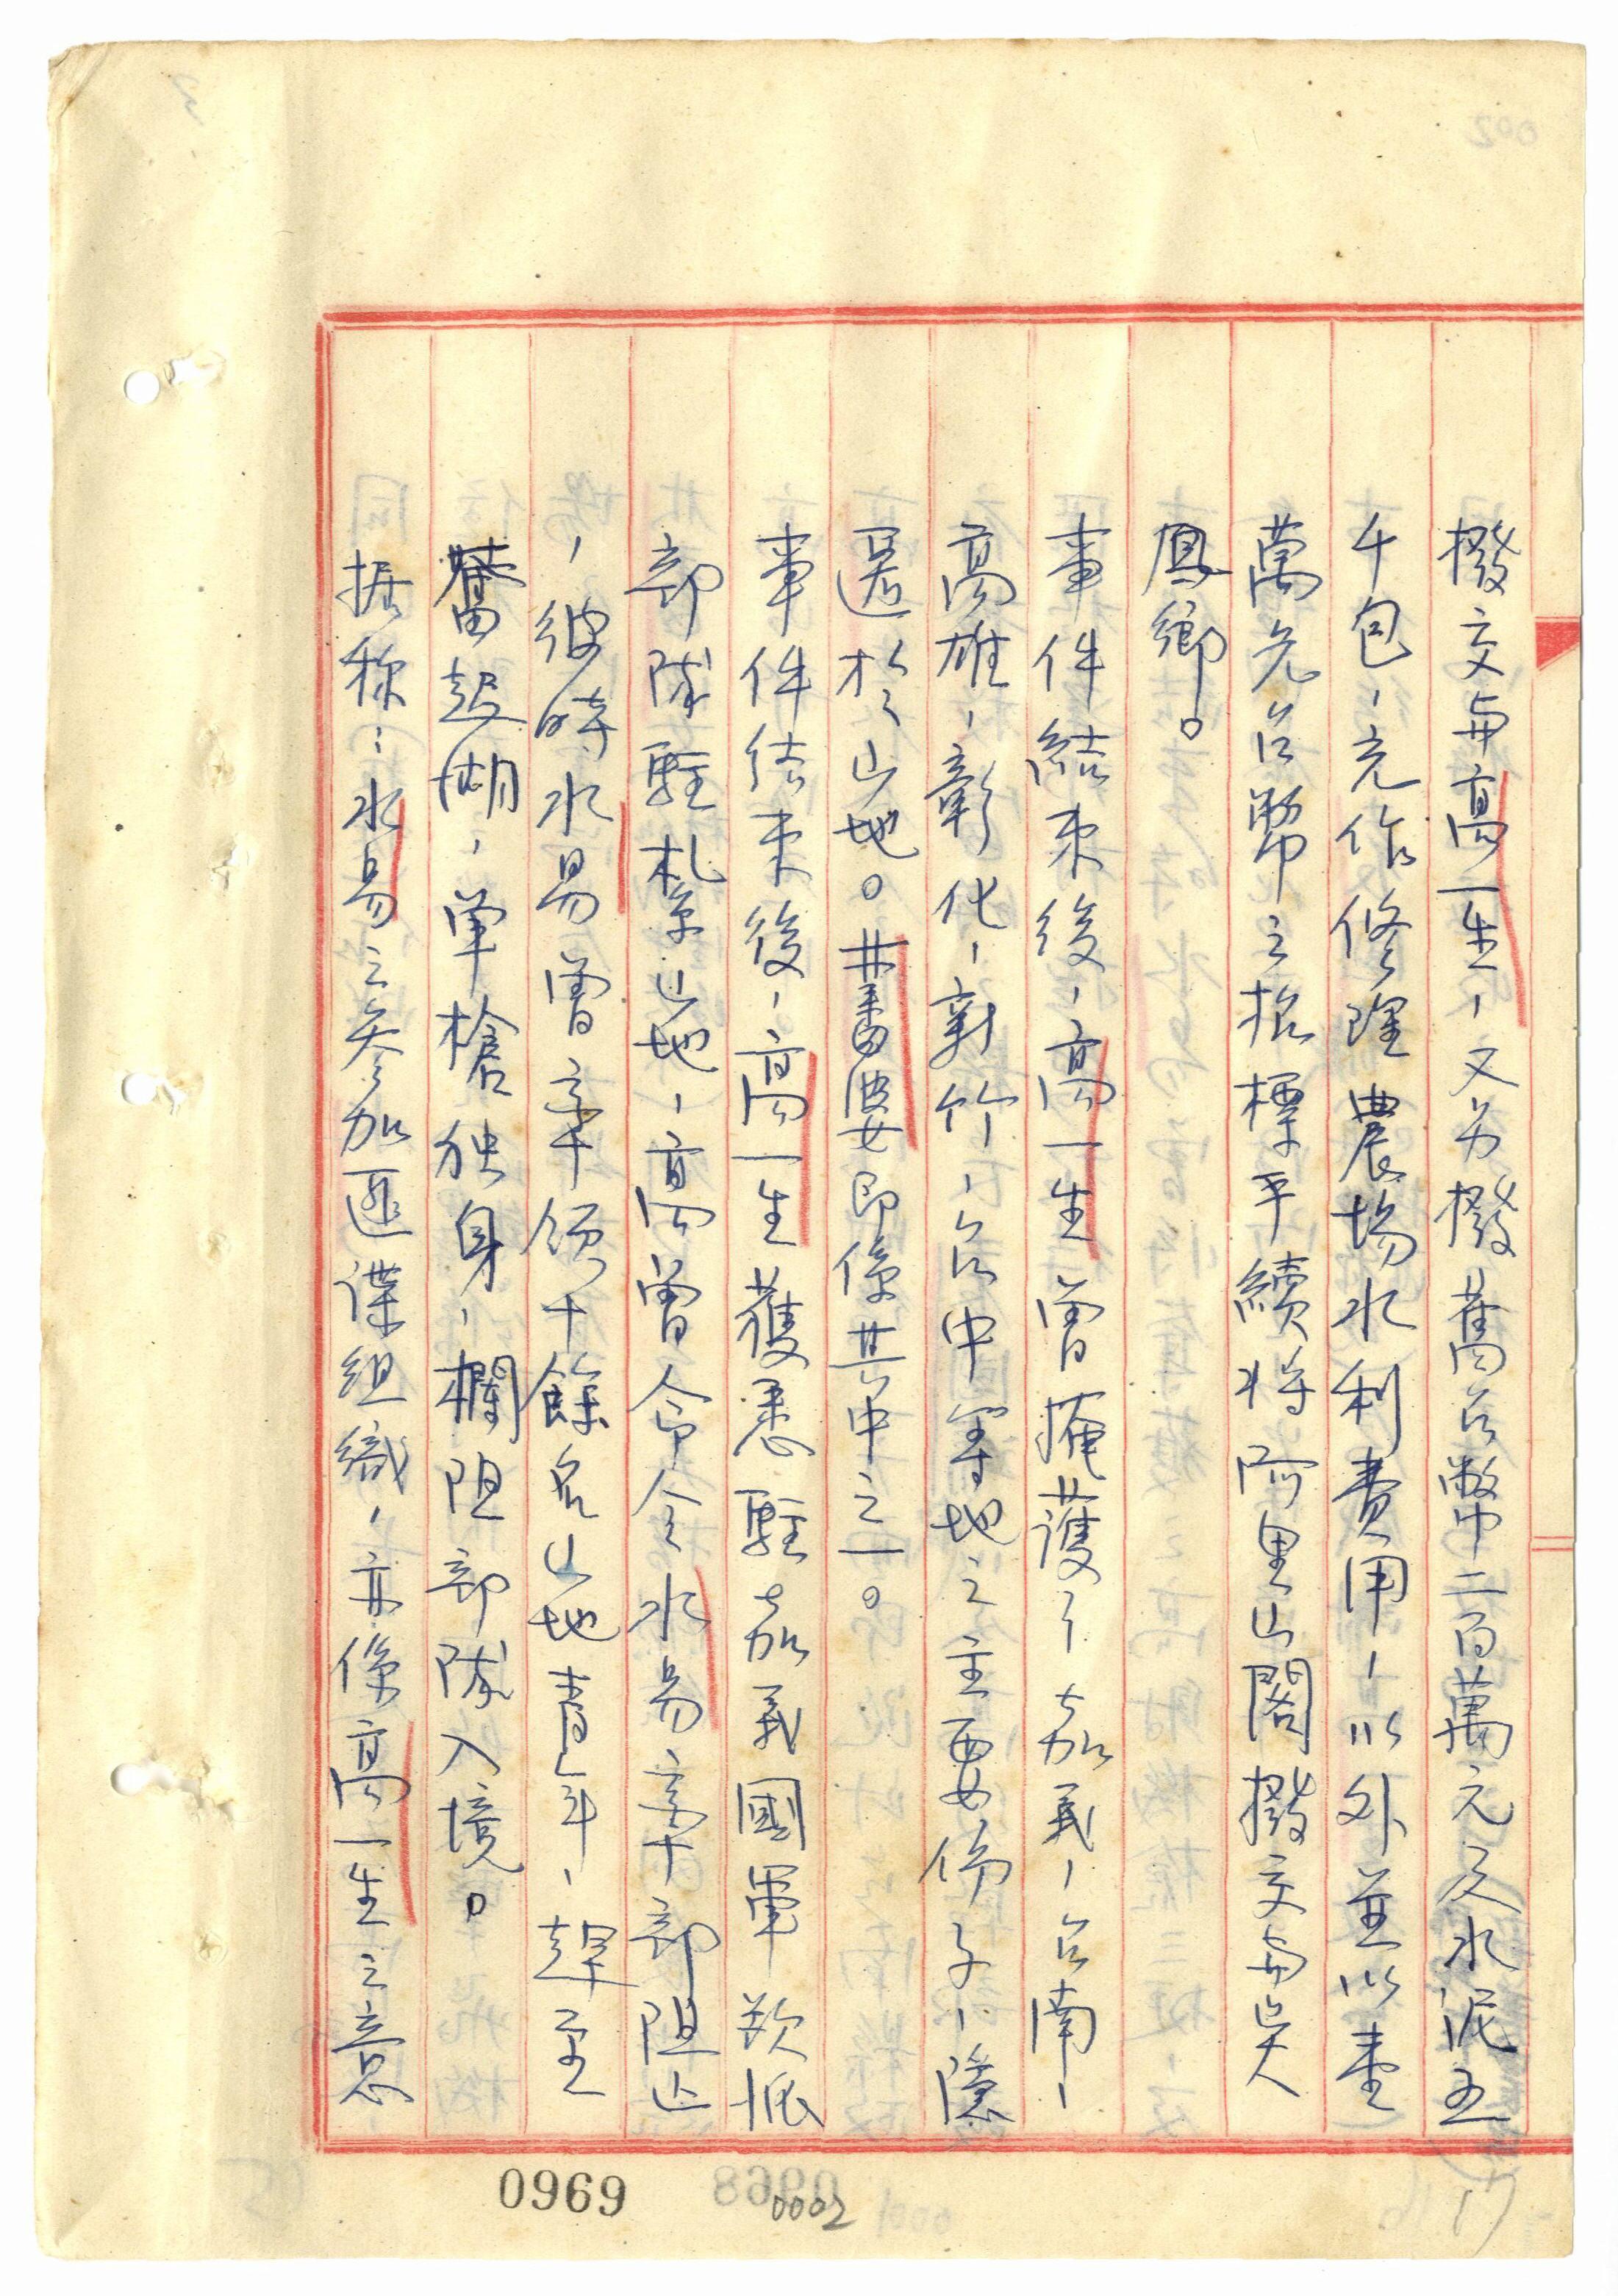 撥交與高一生，又另撥舊台幣二百萬元及水泥五
千包，充作修理農場水利費用，以外並以壹
萬元台幣之招標手續將阿里山閣撥交與吳
鳳鄉。
事件結束後，高一生曾掩護了嘉義，台南，
高雄，彰化，新竹，台中等地之主要份子，隱
匿於山地。 即係其中之一。
事件結束後，高一生獲悉駐嘉義國軍欲派
部隊駐紮山地，高曾命令水易率部阻止
，彼時水易曾率領十餘名山地青年，趕至
奮起湖，單槍独身，欄阻部隊入境。
据称：水易之參加匪諜組織，亦係高一生之意
0969
0002